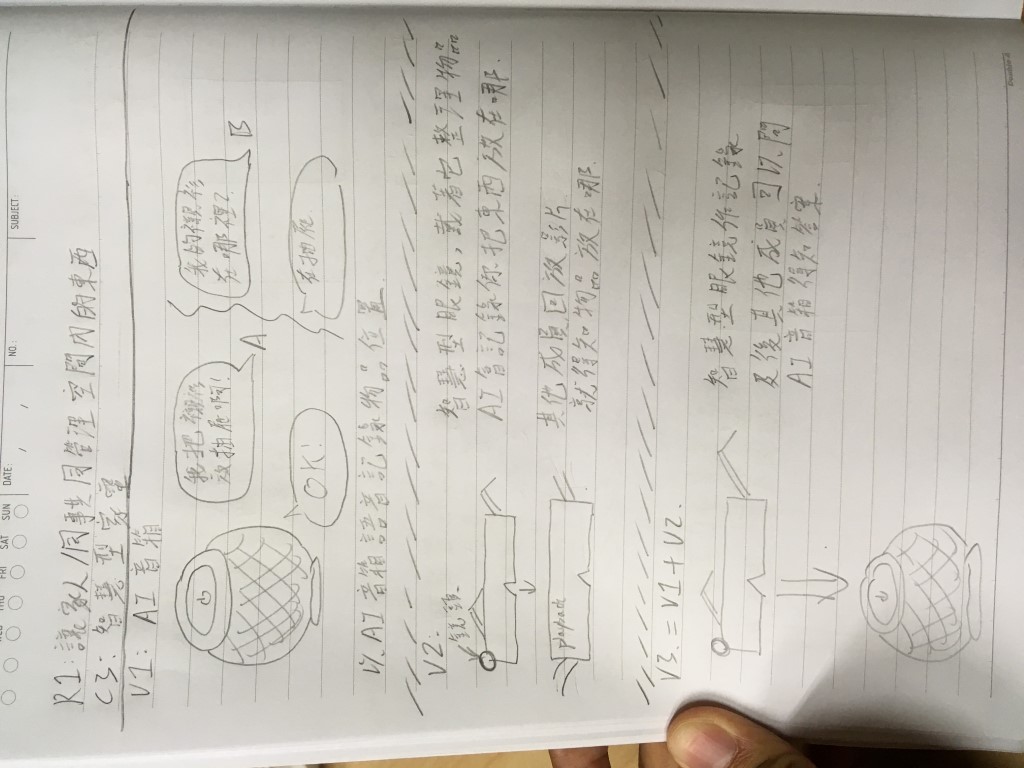 WED THU FRI SAT SUN DATE: / / NO.: SUBJECT:
R1: 讓家人/同事共同管理空間內的東西
C3: 智慧型家電
V1: AI音箱
我把襯衫
放抽屜啊!
A
我的襯衫
在哪裡?
B
OK!
在抽屜
以AI音箱語音記錄物品位置.
V2:
鏡頭
智慧型眼鏡,戴著它整理物品
AI會記錄你把東西放在哪.
playback
其他成員回放影片
就得知物品放在哪.
V3. = V1 + V2.
智慧型眼鏡作記錄
及後其他成員可以問
AI音箱得知答案.